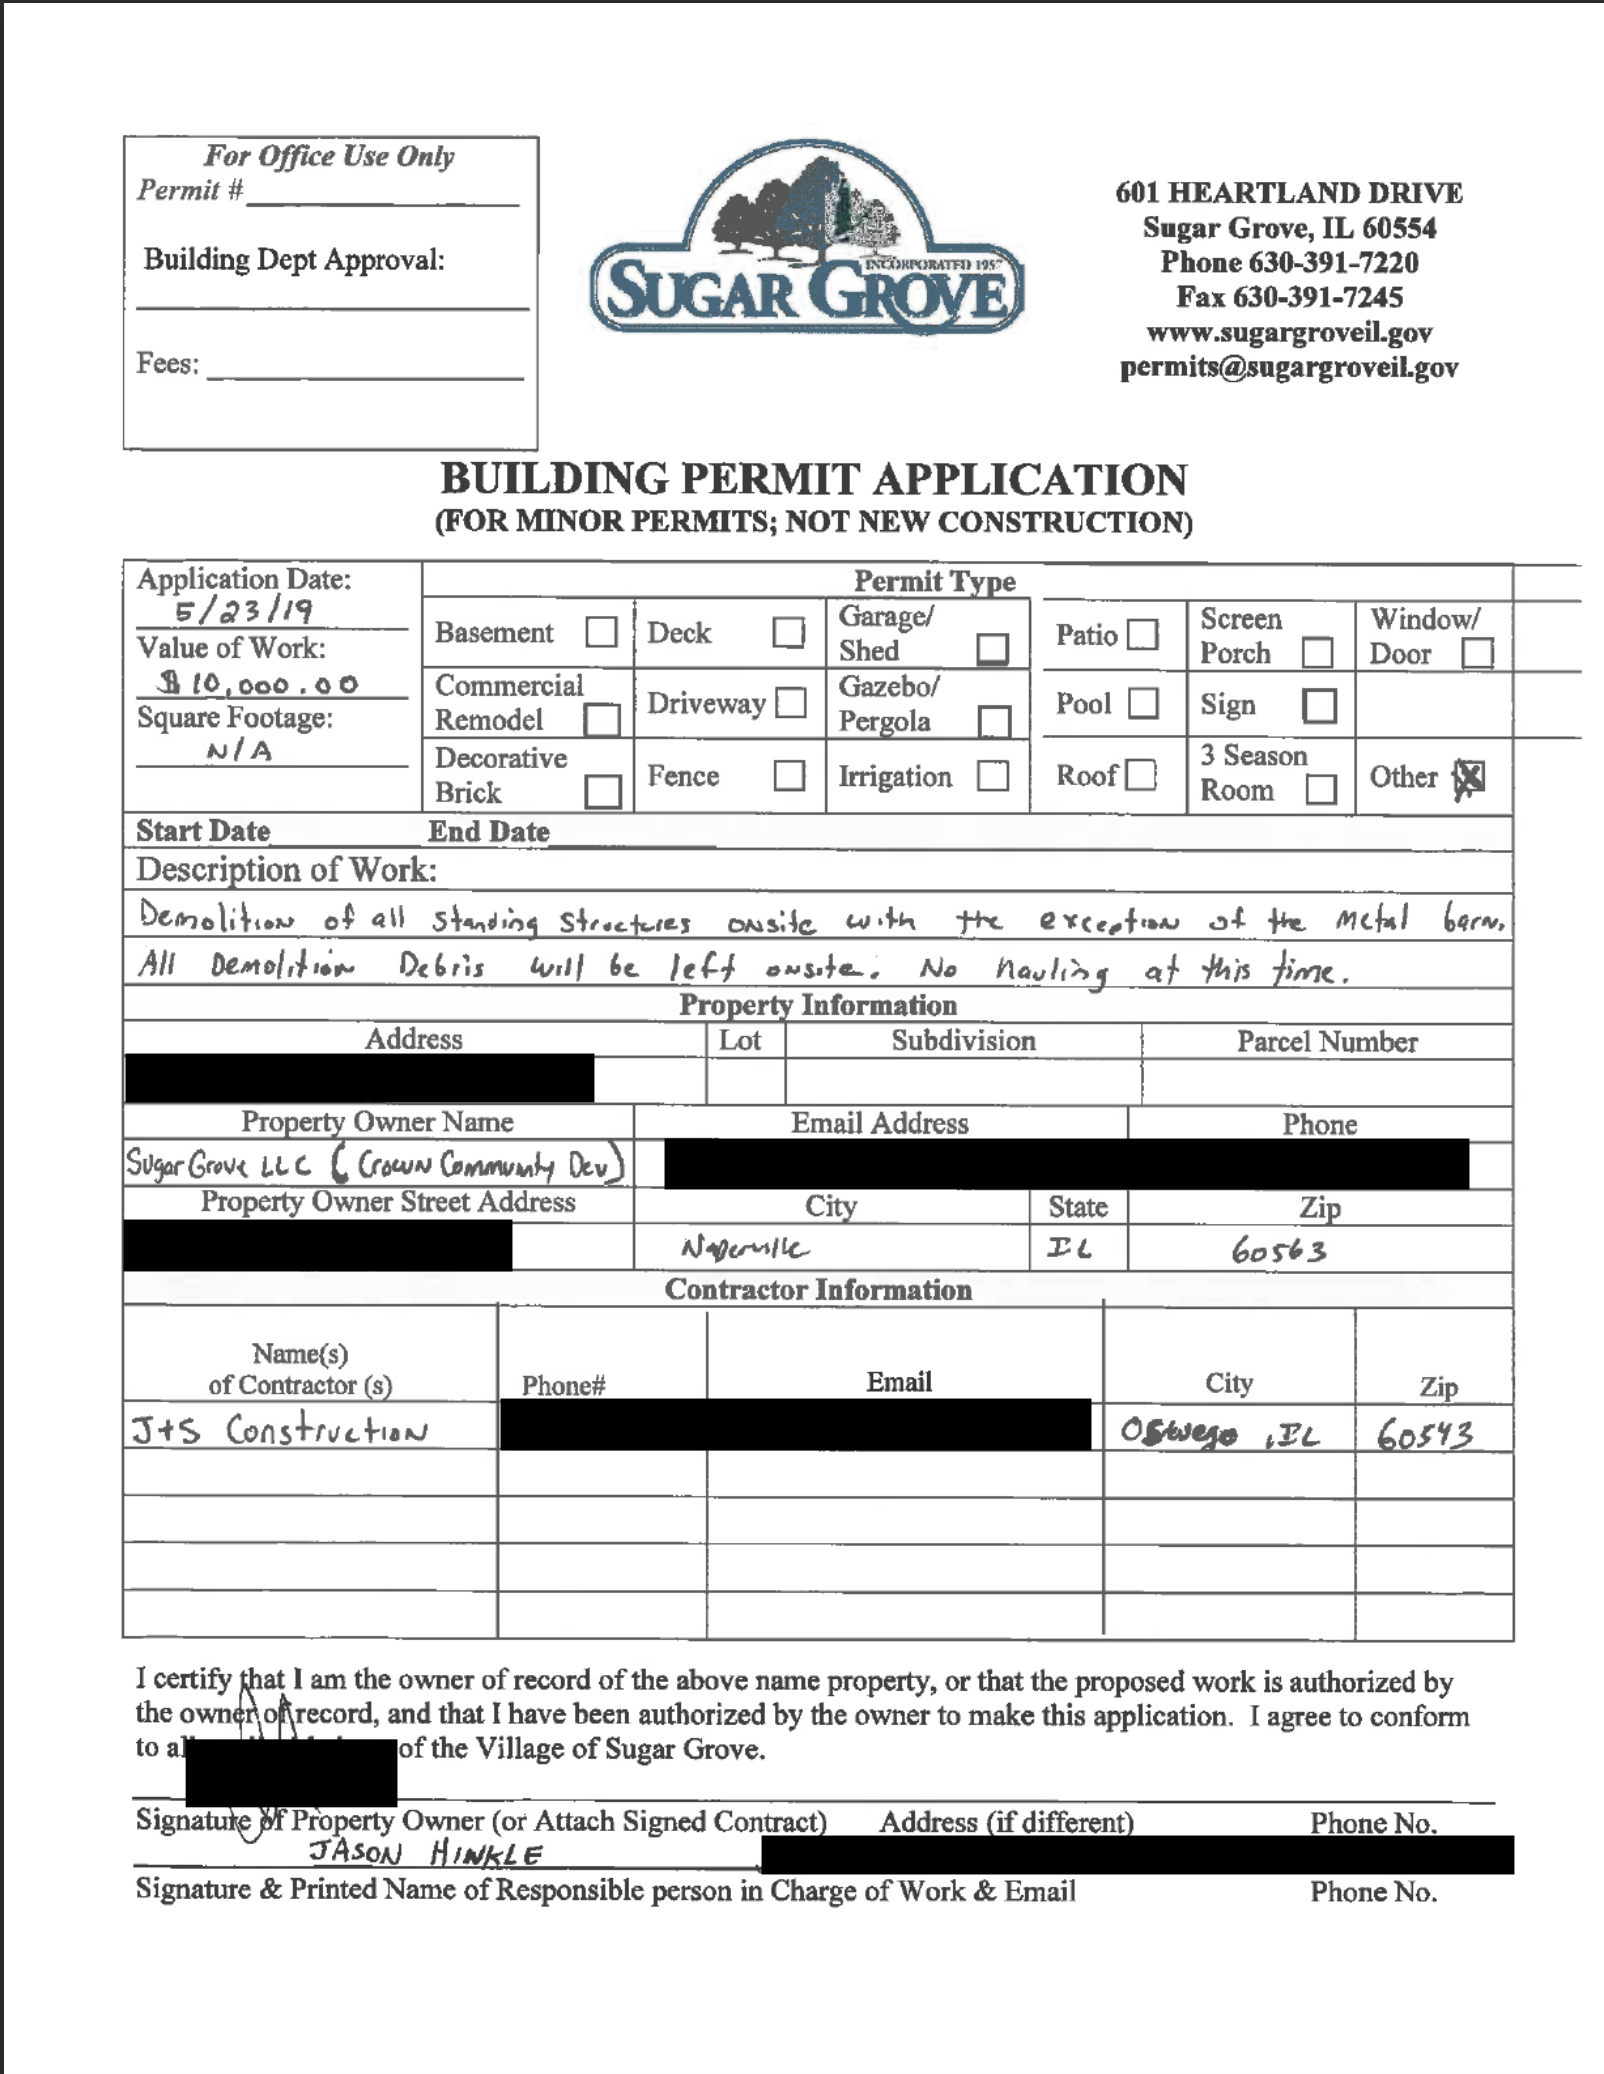 For Office Use Only
Permit #
Building Dept Approval:
Fees:
INCORPORATED 1957
SUGAR GROVE
601 HEARTLAND DRIVE
Sugar Grove, IL 60554
Phone 630-391-7220
Fax 630-391-7245
www.sugargroveil.gov
permits@sugargroveil.gov
BUILDING PERMIT APPLICATION
(FOR MINOR PERMITS; NOT NEW CONSTRUCTION)
Application Date:
5/23/19
Value of Work:
$ 10,000.00
Square Footage:
N/A
Permit Type
Basement Deck Garage/ Shed Patio Screen Porch Window/ Door
Commercial Remodel Driveway Gazebo/ Pergola Pool Sign
Decorative Brick Fence Irrigation Roof 3 Season Room Other X
Start Date End Date
Description of Work:
Demolition of all standing structures onsite with the exception of the metal barn.
All Demolition Debris will be left onsite. No hauling at this time.
Property Information
Address Lot Subdivision Parcel Number
Property Owner Name Email Address Phone
Sugar Grove LLC (Crown Community Dev)
Property Owner Street Address City State Zip
Naperville IL 60563
Contractor Information
Name(s)
of Contractor (s) Phone# Email City Zip
J+S Construction Oswego, IL 60543
I certify that I am the owner of record of the above name property, or that the proposed work is authorized by
the owner of record, and that I have been authorized by the owner to make this application. I agree to conform
to all of the Village of Sugar Grove.
Signature of Property Owner (or Attach Signed Contract) Address (if different) Phone No.
JASON HINKLE
Signature & Printed Name of Responsible person in Charge of Work & Email Phone No.